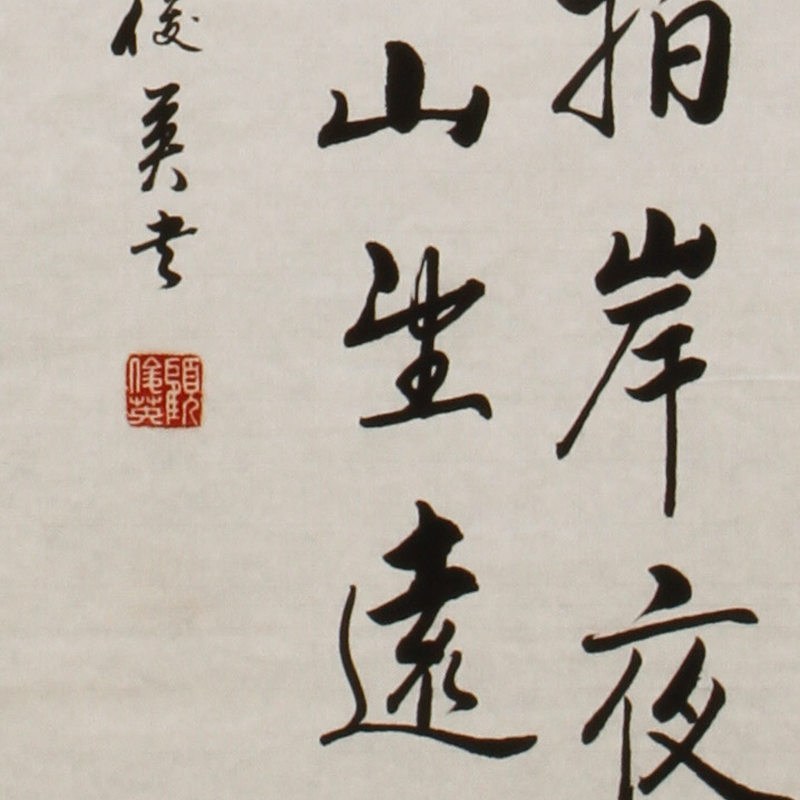 拍岸夜
山望遠
俊英書
顧俊英